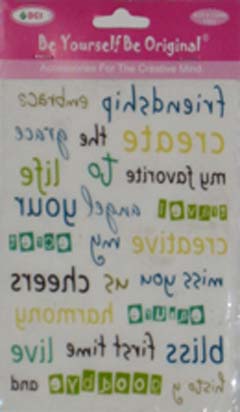 DCI
Be Yourself Be Original
Accessories For The Creative Mind.
friendship embrace
create the grace
my favorite to life
travel angel your
creative my secret
miss you us cheers
harmony
bliss first time live
history goodbye and